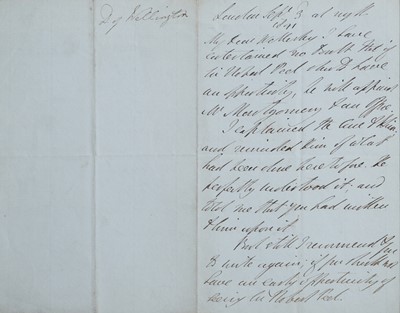 D of Wellington
London Sept 3 at night
1841
My Dear Wellesley. I have
entertained no Doubt that if
Sir Robert Peel should have
an opportunity, he will appoint
Mr Montgomery to an Office.
I explained the Case to Him
and reminded Him of what
had been done heretofore. He
perfectly understood it; and
told me that you had written
to him upon it.
But still I recommend You
to write again; if you should not
have an early opportunity of
seeing Sir Robert Peel.